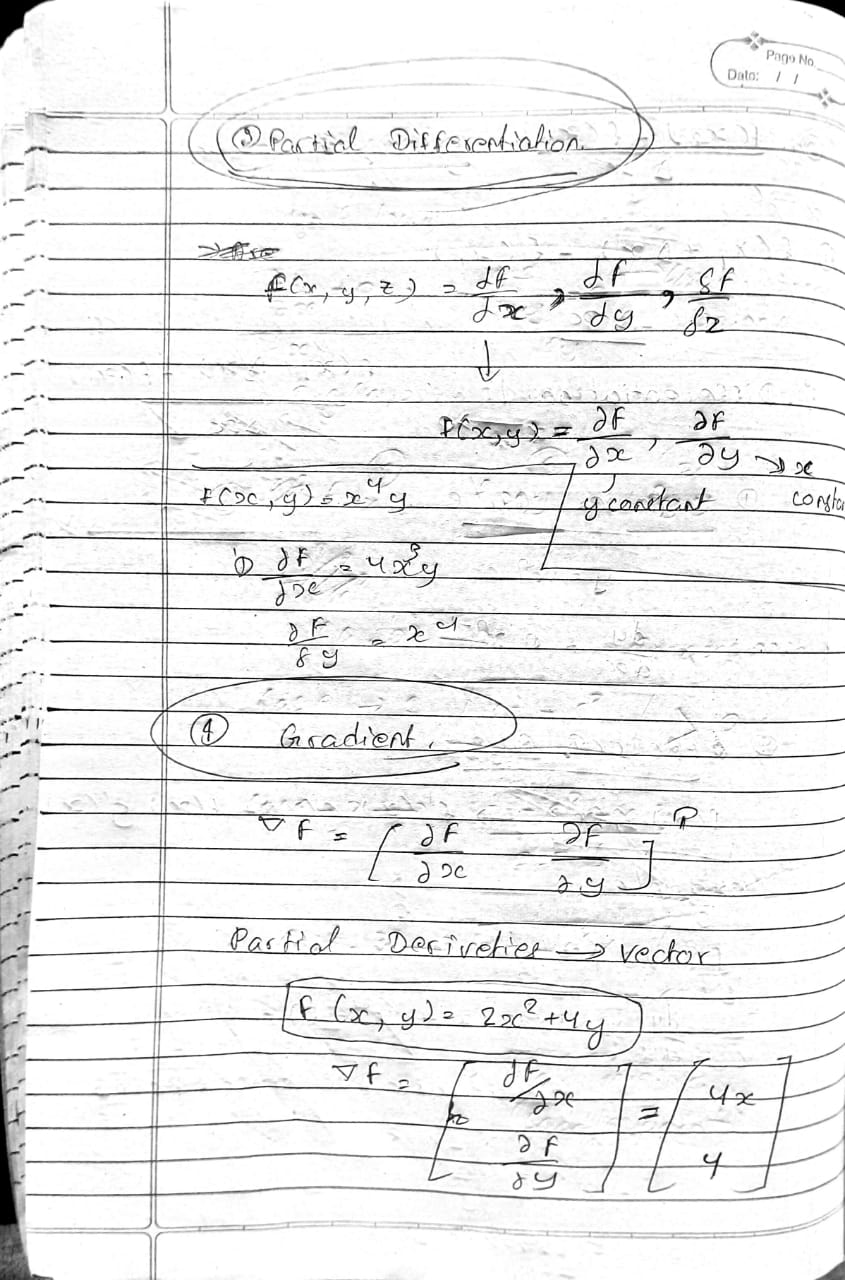 Page No.
Date: / /
③ Partial Differentiation
f(x, y, z) = ∂f/∂x , ∂f/∂y , δf/δz
↓
f(x,y) = ∂f/∂x , ∂f/∂y → x
y constant
f(x, y) = x⁴y
① ∂f/∂x = 4x³y
∂f/δy = x⁴
④ Gradient.
∇f = [ ∂f/∂x ∂f/∂y ]ᵀ
Partial Deriveties → vector
f (x, y) = 2x² + 4y
∇f = [ ∂f/∂x ; ∂f/∂y ] = [ 4x ; 4 ]